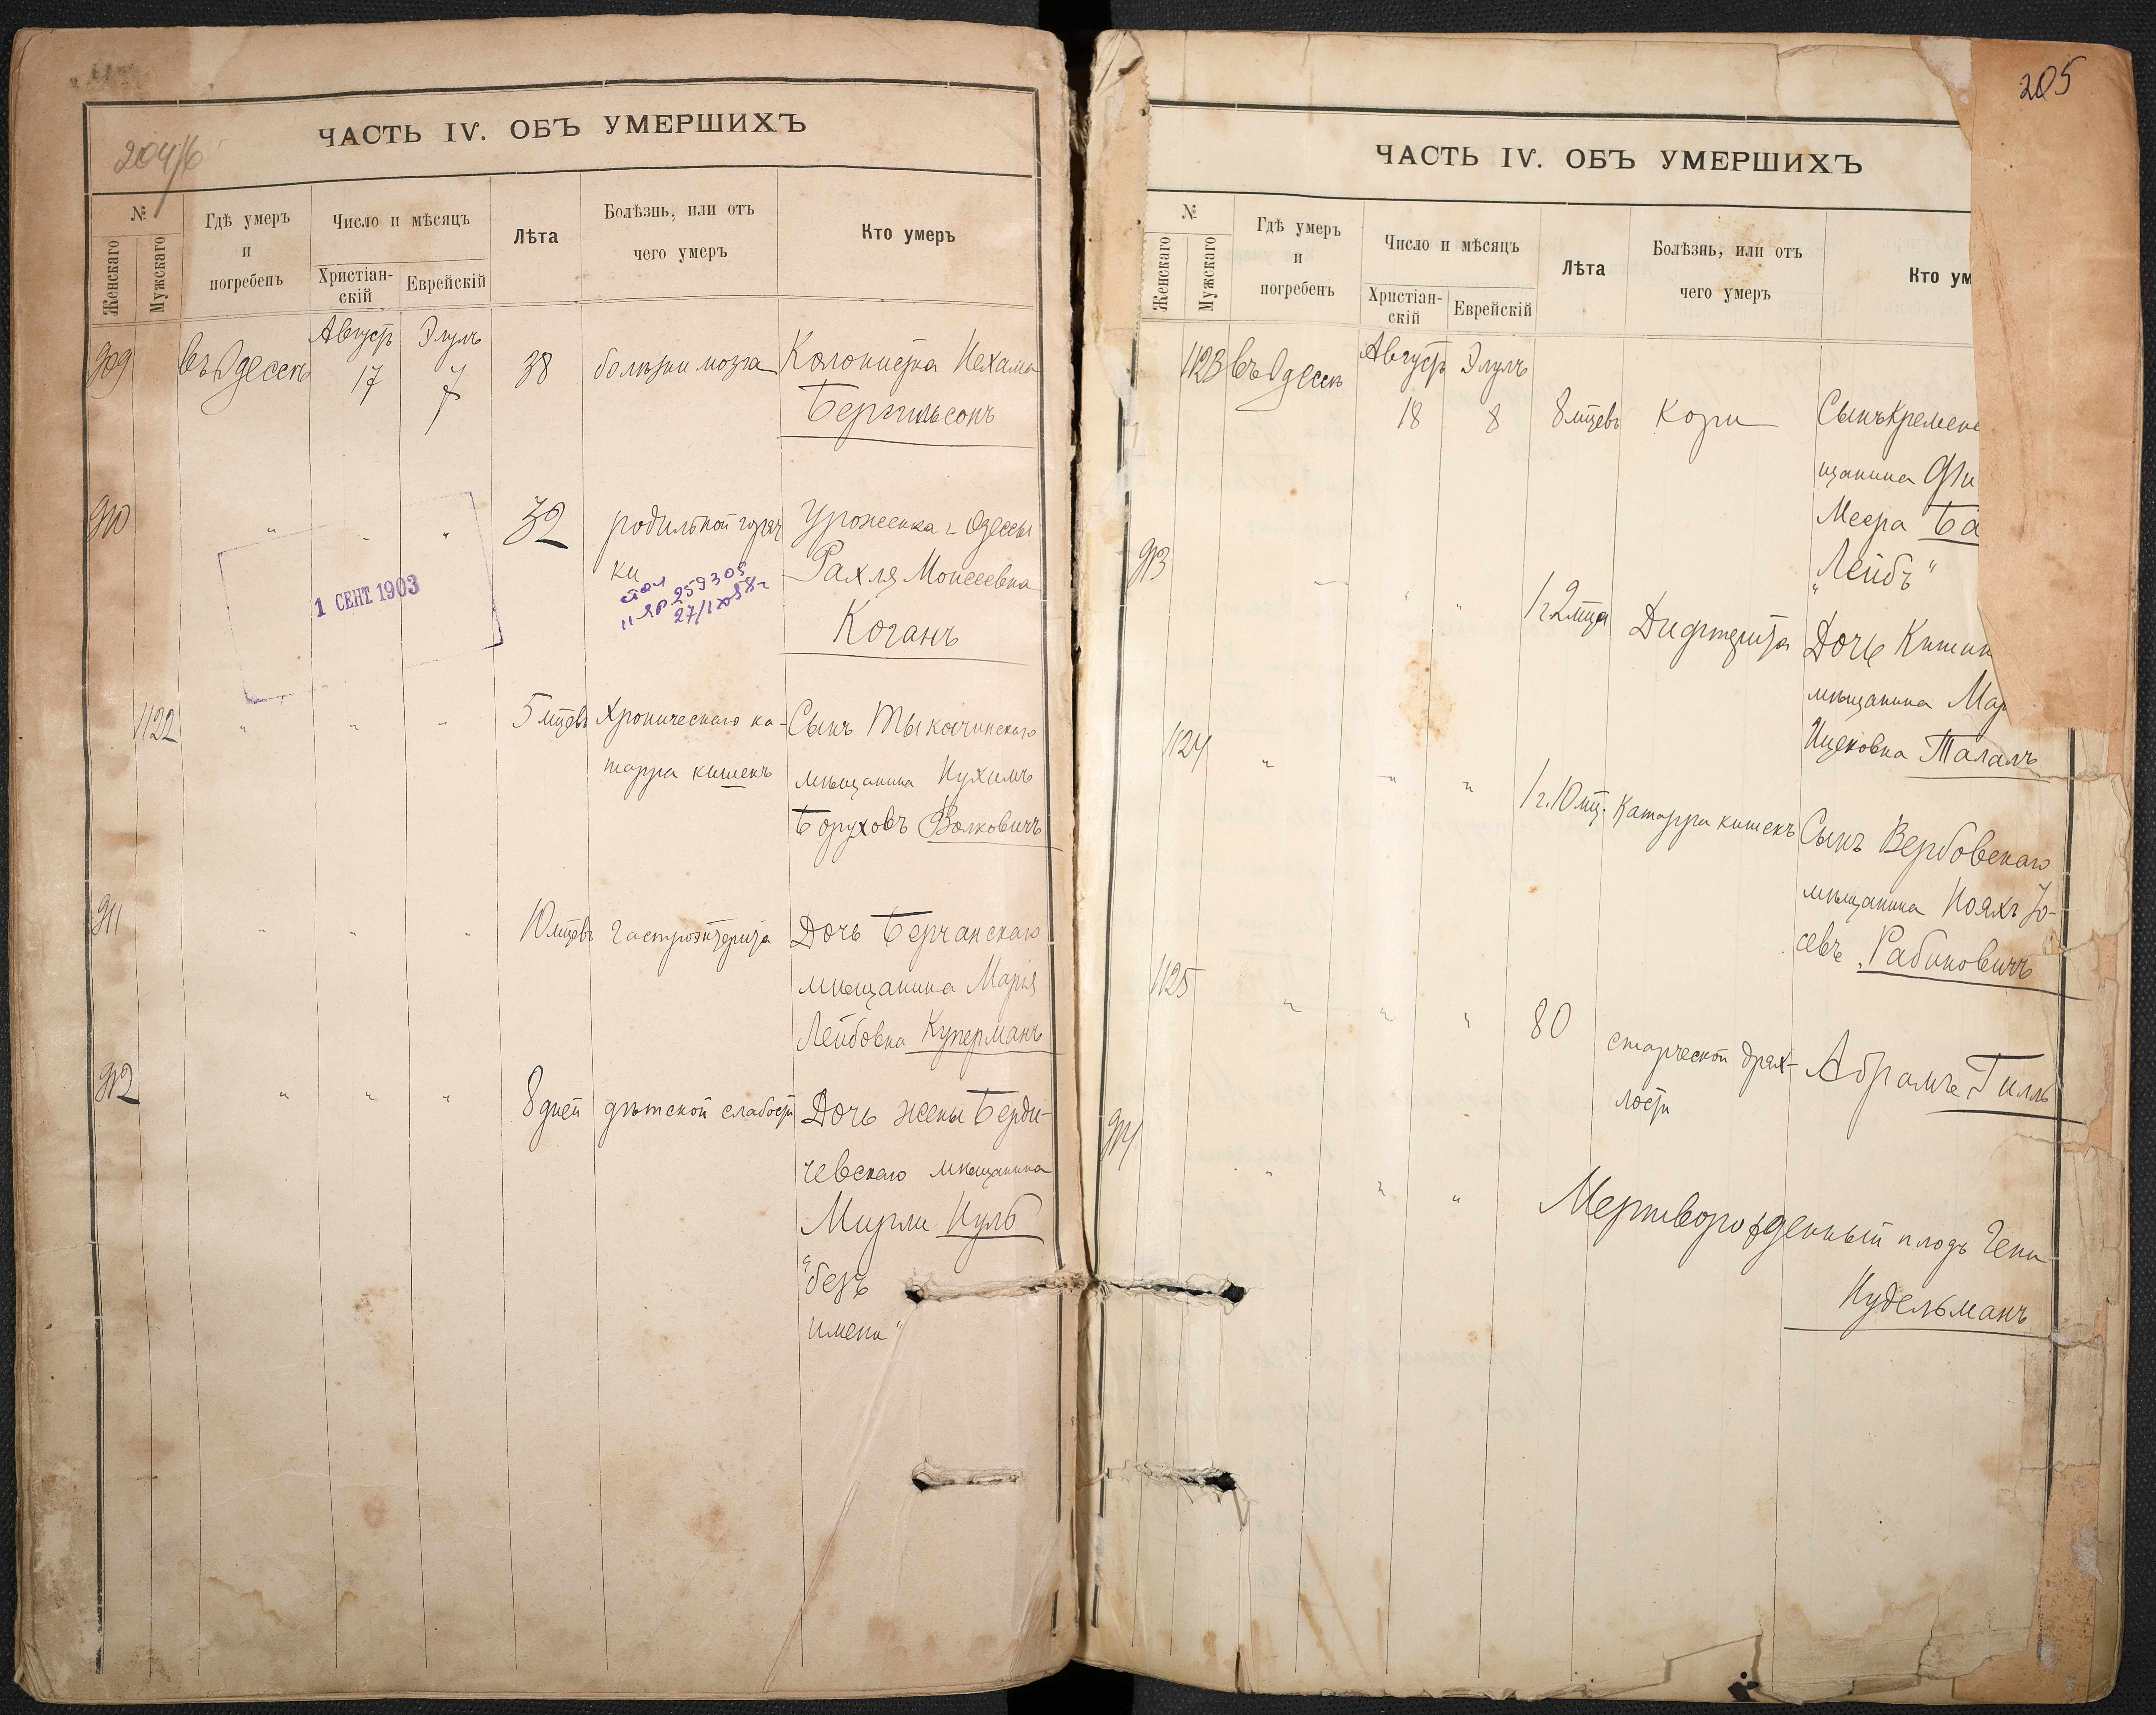 204/б
ЧАСТЬ IV. ОБЪ УМЕРШИХЪ
№
Женскаго
Мужскаго
Гдѣ умеръ и погребенъ
Число и мѣсяцъ
Христіан-
скій
Еврейскій
Лѣта
Болѣзнь, или отъ
чего умеръ
Кто умеръ
909 въ Одессѣ Августъ 17 Элулъ 7 38 болѣзни мозга Колонистка Нехама
Бергильсонъ
910 " " " 32 родильной горяч
ки
Уроженка г. Одессы
Рахля Моисеевна
Коганъ
1 СЕНТ 1903
259305
1122 " " " 5 мцевъ Хроническаго ка-
тарра кишекъ
Сынъ Тыкочинскаго
мѣщанина Нухимъ
Боруховъ Волковичъ
911 " " " 10 мцевъ Гастроэнтерита Дочь Берчанскаго
мѣщанина Марія
Лейбовна Куперманъ
912 " " " 8 дней дѣтской слабости Дочь жены Берди-
чевскаго мѣщанина
Мирли Нуль
"безъ
имени"
205
ЧАСТЬ IV. ОБЪ УМЕРШИХЪ
№
Женскаго
Мужскаго
Гдѣ умеръ
и
погребенъ
Число и мѣсяцъ
Христіан-
скій
Еврейскій
Лѣта
Болѣзнь, или отъ
чего умеръ
Кто ум
1123 въ Одессѣ Августъ 18 Элулъ 8 8 мцевъ Кори Сынъ Кремене
щанина
Меера Ба
"Лейбъ"
913 " " " 1 г. 2 мца Дифтерита Дочь Кишин
мѣщанина Мар
Ицковна Талалъ
1124 " " " 1 г. 10 мц. Катарра кишекъ Сынъ Вербовскаго
мѣщанина Нояхъ Іо-
севъ Рабиновичъ
1125 " " " 80 старческой дрях-
лости
Абрамъ Гилль
914 " " " Мертворожденный плодъ Гени
Нудельманъ